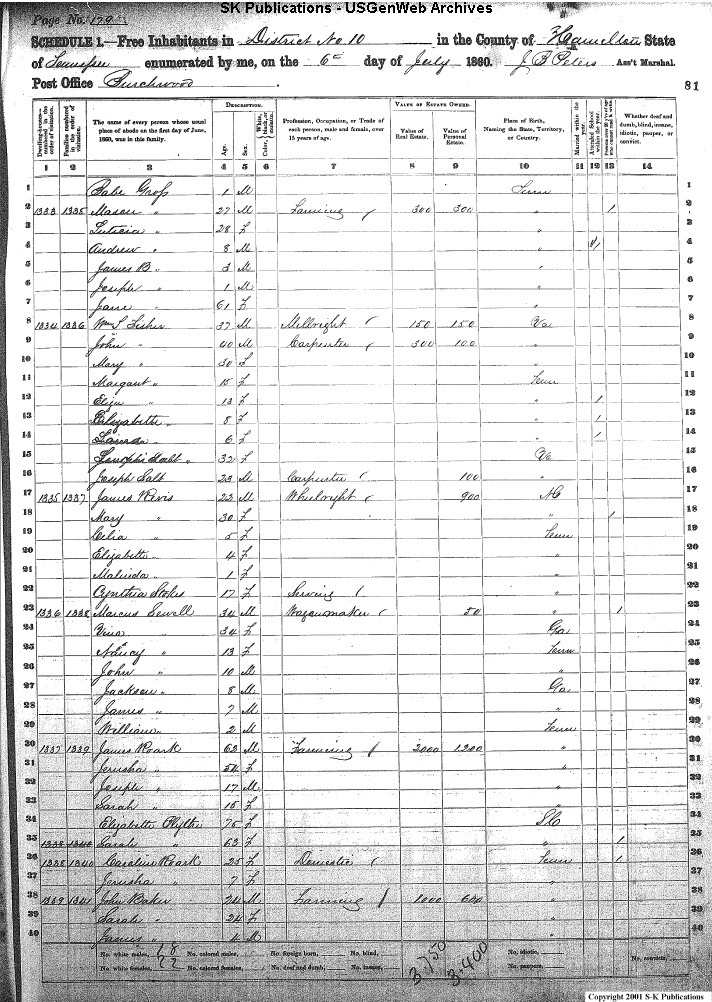 SK Publications - USGenWeb Archives
Page No. 179
SCHEDULE 1.—Free Inhabitants in District No 10 in the County of Hamilton State
of Tennessee enumerated by me, on the 6th day of July 1860. J B Peters Ass't Marshal.
Post Office Burchwood
81
DESCRIPTION. VALUE OF ESTATE OWNED.
Dwelling-houses—numbered in the order of visitation. Families numbered in the order of visitation. The name of every person whose usual place of abode on the first day of June, 1860, was in this family. Age. Sex. Color, Profession, Occupation, or Trade of each person, male and female, over 15 years of age. Value of Real Estate. Value of Personal Estate. Place of Birth, Naming the State, Territory, or Country. Married within the year. Attended School within the year. Whether deaf and dumb, blind, insane, idiotic, pauper, or convict.
1 2 3 4 5 6 7 8 9 10 11 12 13 14
1 Babe Gross 1 M Tenn 1
2 1333 1335 Mason " 27 M Farming / 300 300 " / 2
3 Luticia " 28 F " 3
4 Andrew " 8 M " / 4
5 James B " 3 M " 5
6 Joseph " 1 M " 6
7 Jane " 61 F " 7
8 1334 1336 Wm S Fisher 37 M Millright / 150 150 Va 8
9 John " 40 M Carpenter / 300 100 " 9
10 Mary " 30 F " 10
11 Margaret " 15 F Tenn 11
12 Eliza " 13 F " / 12
13 Elizabeth " 8 F " / 13
14 " 6 F " / 14
15 " 32 F Va 15
16 Joseph Salt 23 M Carpenter / 100 " 16
17 1335 1337 James Revis 22 M Whelright / 900 NC 17
18 Mary " 30 F " / 18
19 Celia " 5 F Tenn 19
20 Elizabeth " 4 F " 20
21 Malinda " 1 F " 21
22 Cynthia Stokes 17 F Serving / " 22
23 1336 1338 Marcus Sewell 34 M Wagonmaker / 50 " / 23
24 Vina " 34 F Ga 24
25 Nancy " 13 F Tenn 25
26 John " 10 M " 26
27 Jackson " 8 M Ga 27
28 James " 7 M " 28
29 William " 2 M Tenn 29
30 1337 1339 James Roark 62 M Farming / 2000 1200 " 30
31 Jerusha " 54 F " 31
32 Joseph " 17 M " 32
33 Sarah " 15 F " 33
34 Elizabeth Blythe 75 F SC 34
35 1338 1340 Sarah " 63 F " / 35
36 1338 1340 Caroline Roark 25 F Domestic / Tenn / 36
Jerusha " 7 F "
38 1339 1341 John Baker 24 M Farming / 1000 600 " 38
39 Sarah " 24 F " 39
40 James " 4 M " 40
No. white males, 18 No. colored males, No. foreign born, No. blind, 3.750 3.400 No. idiotic,
No. white females, 22 No. colored females, No. deaf and dumb, No. insane, No. paupers, No. convicts,
Copyright 2001 S-K Publications